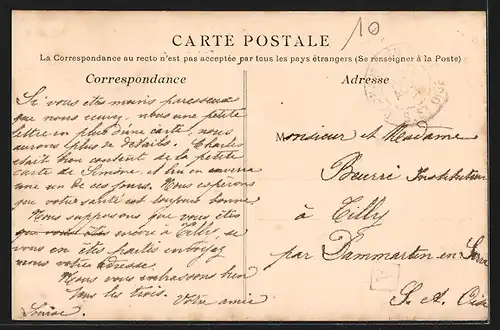 10
CARTE POSTALE
La Correspondance au recto n'est pas acceptée par tous les pays étrangers (Se renseigner à la Poste)
Correspondance
Adresse
Si vous êtes moins paresseux
que nous, nous une petite
lettre en plus d'une carte, nous
aurons plus de détails. Charles
était bien content de la petite
carte de Simone, et lui en enverra
une un de ces jours. Nous espérons
que votre santé est toujours bonne
Nous supposons que vous êtes
encore à Tilly, si
vous en êtes partis envoyez
nous votre adresse.
Nous vous embrassons bien
tous les trois. Votre amie
Louise.
Monsieur et Madame
Beurré Instituteur
à Tilly
par Dammartin en Serve
S. et Oise